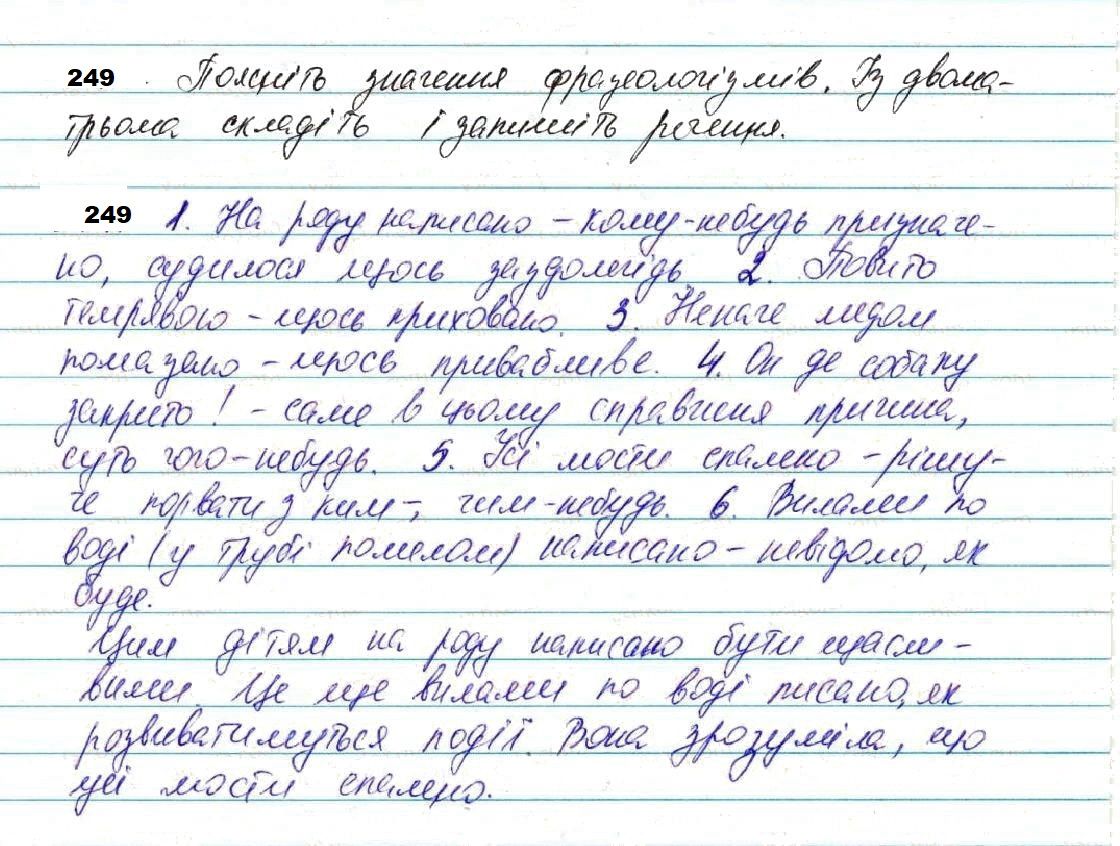 249 Поясніть значення фразеологізмів. Із двома-
трьома складіть і запишіть речення.
249 1. На роду написано – кому-небудь призначе-
но, судилося щось заздалегідь. 2. Повито
темрявою – щось приховано. 3. Неначе медом
помазано – щось привабливе. 4. Он де собаку
закрито! – саме в цьому справжня причина,
суть чого-небудь. 5. Усі мости спалено – рішу-
че порвати з ким-, чим-небудь. 6. Вилами по
воді (у трубі помелом) написано – невідомо, як
буде.
Цим дітям на роду написано бути щасли-
вими. Це ще вилами по воді писано, як
розвиватимуться події. Вона зрозуміла, що
усі мости спалено.